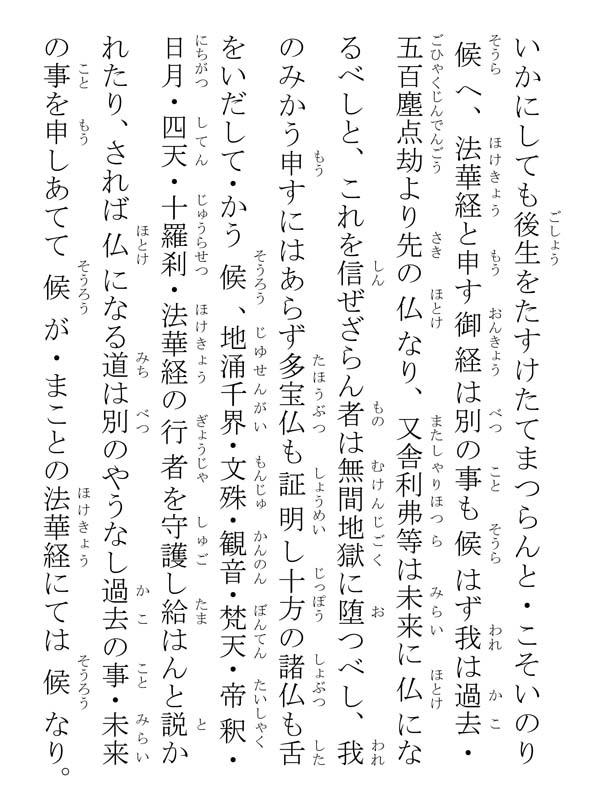 いかにしても後生をたすけたてまつらんと・こそいのり
候へ、法華経と申す御経は別の事も候はず我は過去・
五百塵点劫より先の仏なり、又舎利弗等は未来に仏にな
るべしと、これを信ぜざらん者は無間地獄に堕つべし、我
のみかう申すにはあらず多宝仏も証明し十方の諸仏も舌
をいだして・かう候、地涌千界・文殊・観音・梵天・帝釈・
日月・四天・十羅刹・法華経の行者を守護し給はんと説か
れたり、されば仏になる道は別のやうなし過去の事・未来
の事を申しあてて候が・まことの法華経にては候なり。